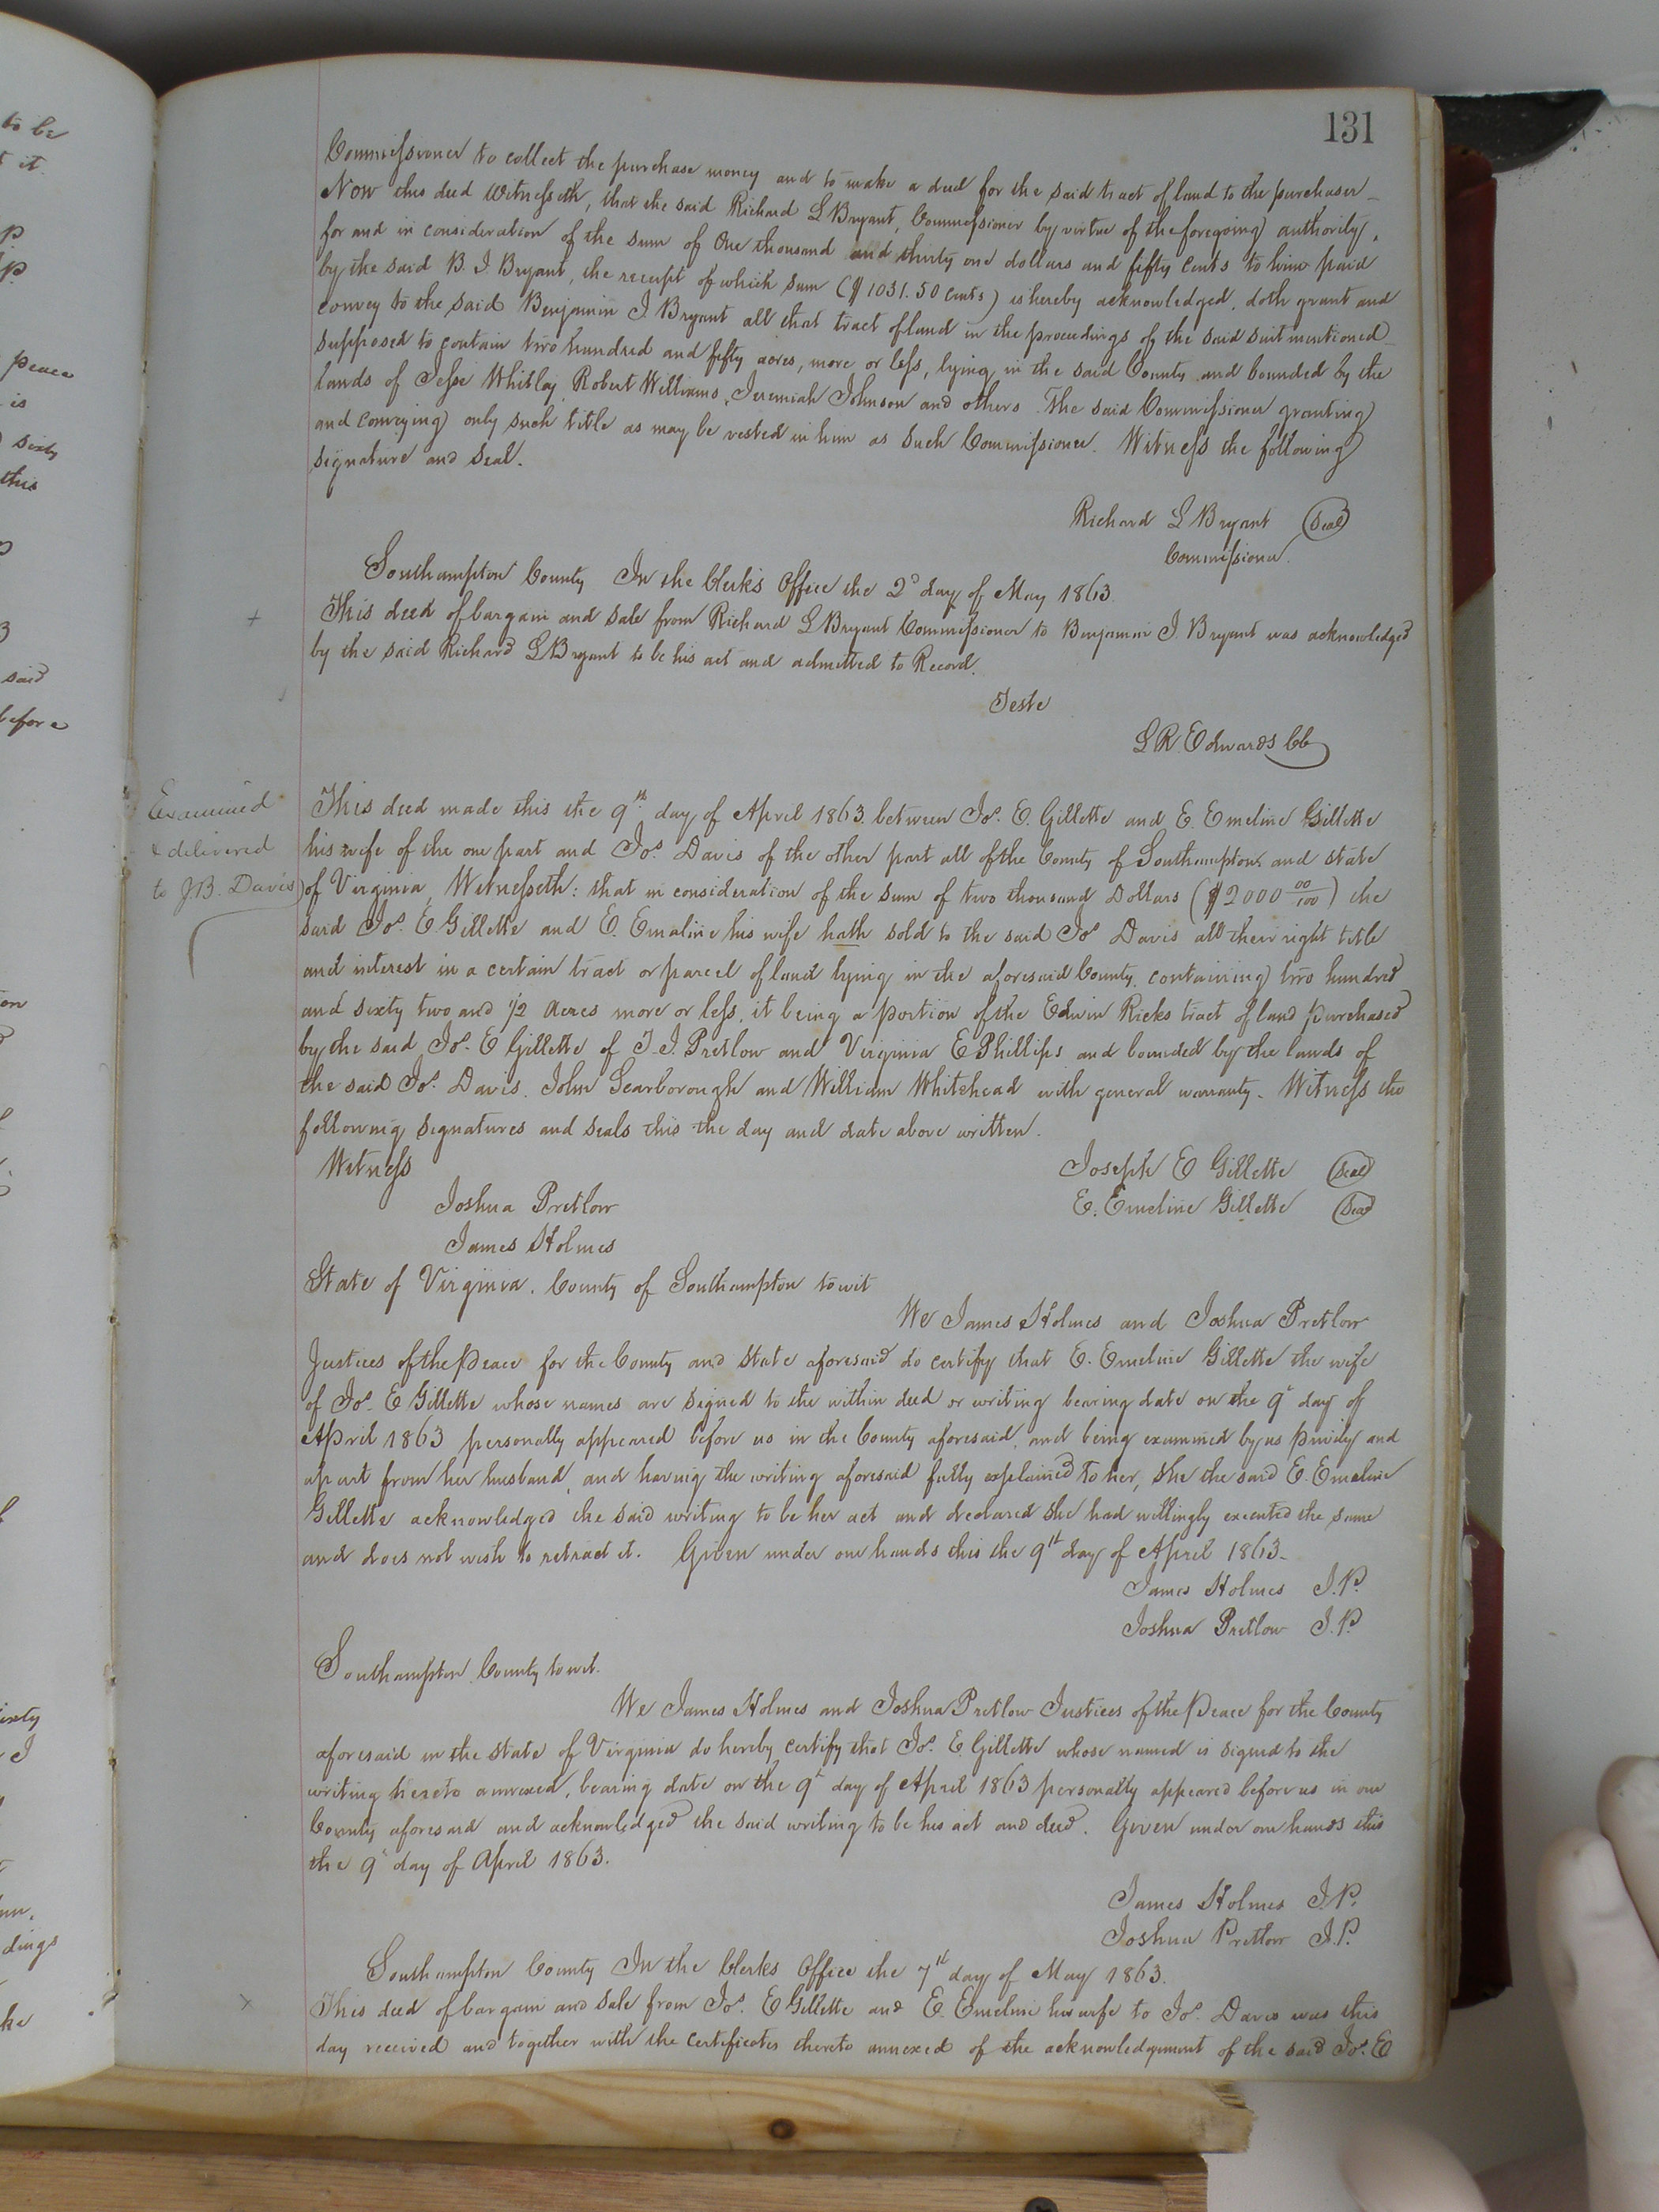 131
Commissioner to collect the purchase money and to make a deed for the said tract of land to the purchaser
Now this deed Witnesseth, that the said Richard L Bryant, Commissioner by virtue of the foregoing authority,
for and in consideration of the sum of One thousand and thirty one dollars and fifty cents to him paid
by the said B. J. Bryant, the receipt of which sum ($1031.50 cents) is hereby acknowledged, doth grant and
convey to the said Benjamin J. Bryant all that tract of land in the proceedings of the said suit mentioned
supposed to contain two hundred and fifty acres, more or less, lying in the said County and bounded by the
lands of Jesse Whitley, Robert Williams, Jeremiah Johnson and others. The said Commissioner granting
and conveying only such title as may be vested in him as such Commissioner. Witness the following
signature and seal.
Richard L Bryant (Seal)
Commissioner.
Southampton County In the Clerk's Office the 2d day of May 1863.
This deed of bargain and sale from Richard L Bryant Commissioner to Benjamin J. Bryant was acknowledged
by the said Richard L Bryant to be his act and admitted to Record.
Teste
L R. Edwards CC
Examined
& delivered
to J.B. Davis
This deed made this the 9th day of April 1863 between Jos. E. Gillette and E. Emeline Gillette
his wife of the one part and Jos. Davis of the other part all of the County of Southampton and State
of Virginia, Witnesseth: that in consideration of the sum of two thousand Dollars ($2000 00/100) the
said Jos. E. Gillette and E. Emaline his wife hath sold to the said Jos Davis all their right title
and interest in a certain tract or parcel of land lying in the aforesaid County, containing two hundred
and sixty two and 1/2 Acres more or less, it being a portion of the Edwin Ricks tract of land purchased
by the said Jos. E Gillette of T. J. Pretlow and Virginia E Phillips and bounded by the lands of
the said Jos. Davis. John Scarborough and William Whitehead with general warranty. Witness the
following signatures and seals this the day and date above written.
Witness
Joshua Pretlow
James Holmes
Joseph E Gillette (Seal)
E. Emeline Gillette (Seal)
State of Virginia. County of Southampton to wit
We James Holmes and Joshua Pretlow
Justices of the Peace for the County and State aforesaid do certify that E. Emeline Gillette the wife
of Jos. E Gillette whose names are signed to the within deed or writing bearing date on the 9th day of
April 1863 personally appeared before us in the County aforesaid, and being examined by us privily and
apart from her husband, and having the writing aforesaid fully explained to her, she the said E. Emeline
Gillette acknowledged the said writing to be her act and declared she had willingly executed the same
and does not wish to retract it. Given under our hands this the 9th day of April 1863.
James Holmes J.P.
Joshua Pretlow J.P.
Southampton County to wit.
We James Holmes and Joshua Pretlow Justices of the Peace for the County
aforesaid in the State of Virginia do hereby certify that Jos. E. Gillette whose named is signed to the
writing hereto annexed, bearing date on the 9th day of April 1863 personally appeared before us in our
County aforesaid and acknowledged the said writing to be his act and deed. Given under our hands this
the 9th day of April 1863.
James Holmes J.P.
Joshua Pretlow J.P.
Southampton County In the Clerks Office the 7th day of May 1863.
This deed of bargain and sale from Jos. E Gillette and E. Emeline his wife to Jos. Davis was this
day received and together with the certificates thereto annexed of the acknowledgement of the said Jos. E